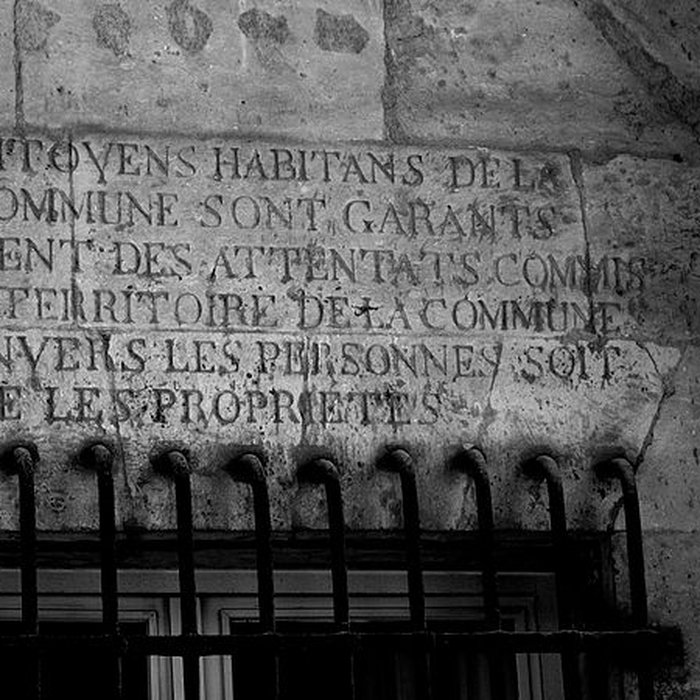 ITOYENS HABITANS DE LA
OMMUNE SONT GARANTS
ENT DES ATTENTATS COMMIS
TERRITOIRE DE LA COMMUNE
NVERS LES PERSONNES SOIT
E LES PROPRIETES